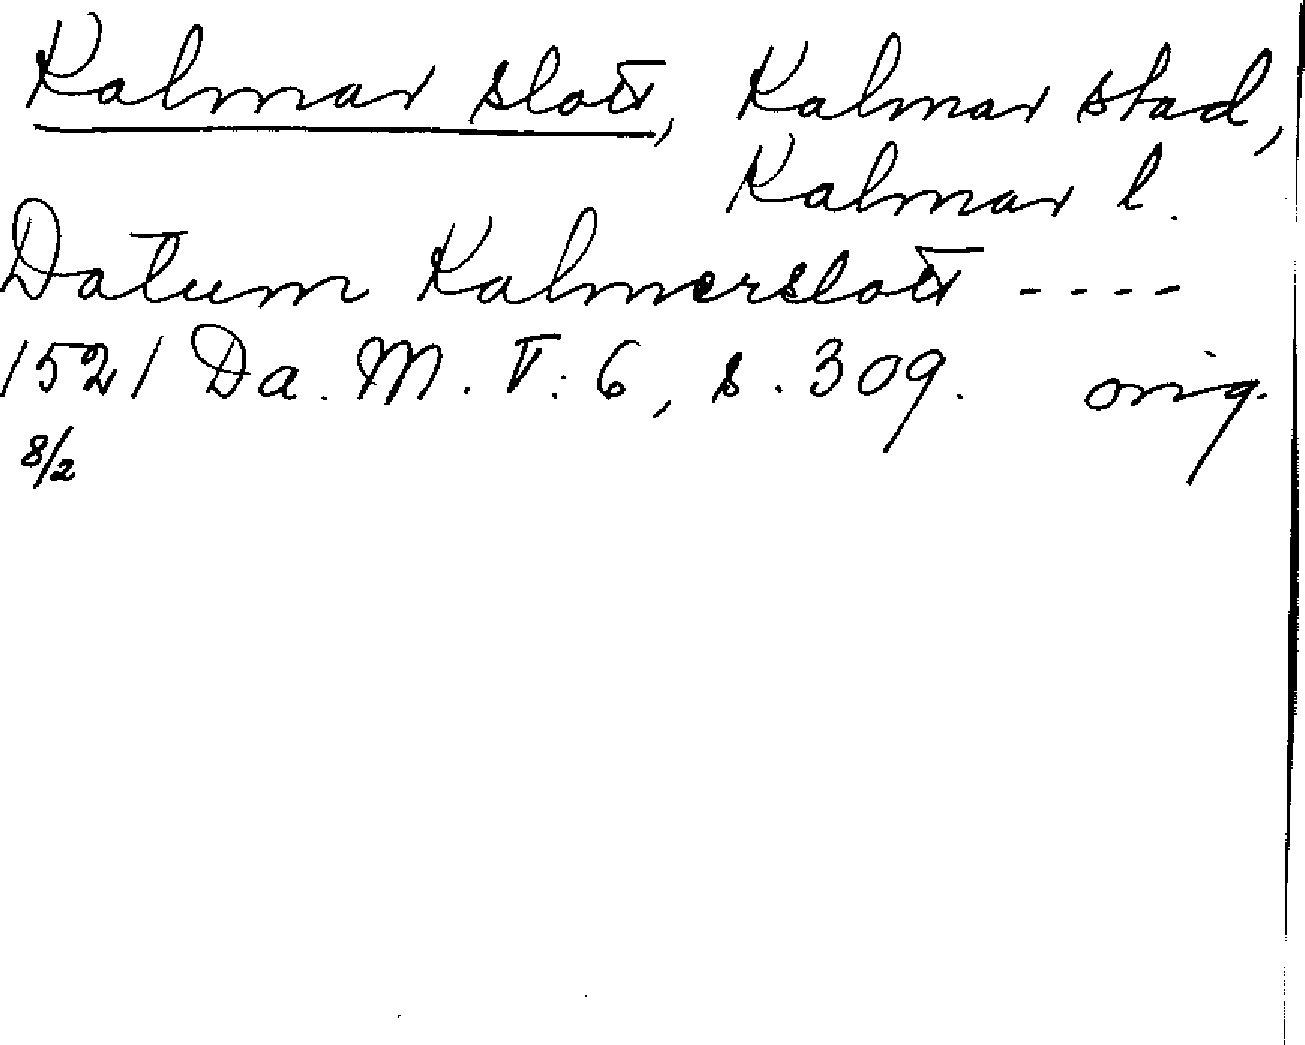 Kalmar slott, Kalmar stad,
Kalmar l.
Datum Kalmerslott ----
1521 Da. M. V: 6, s. 309. orig.
8/2